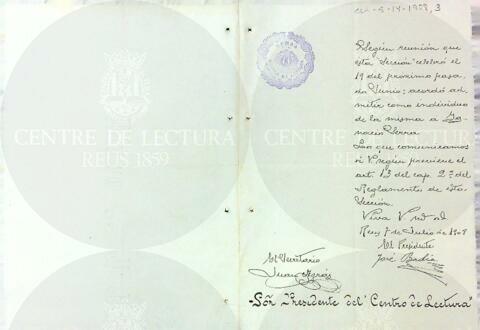 CCL-5-14-1908, 3
Según reunión que
ésta Sección celebró el
19 del próximo pasa-
do Junio; acordó ad-
mitir como individuo
de la misma a Ig-
nacio Serra
Lo que comunicamos
á V. según previene el
art. 13 del cap. 2º del
Reglamento de esta
Sección.
Viva V. m. a.
Reus 7 de Julio de 1908
El Presidente
José Badia
El Secretario
Juan
Sor. Presidente del "Centro de Lectura"
CENTRE DE LECTURA
REUS 1859
CENTRE DE LECTUR
REUS 1859